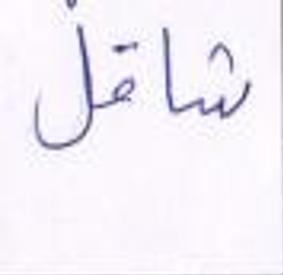 شاقل